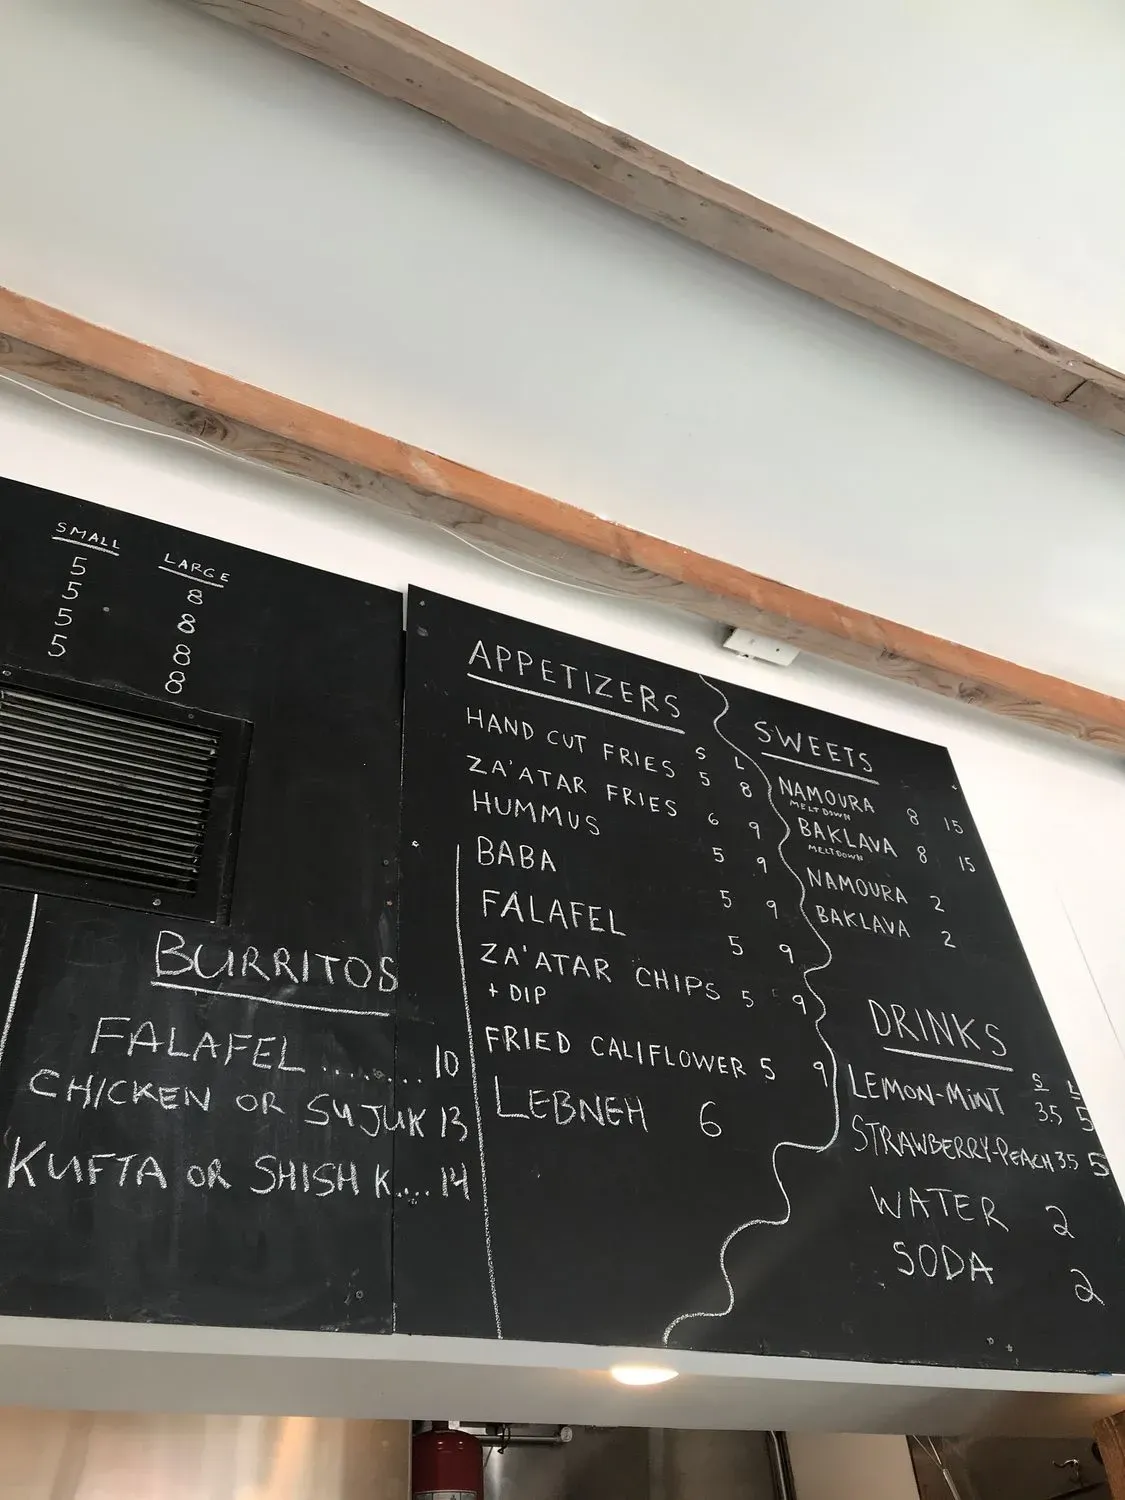 SMALL LARGE
5 8
5 8
5 8
5 8
BURRITOS
FALAFEL ........ 10
CHICKEN OR SUJUK 13
KUFTA OR SHISH K.... 14
APPETIZERS
S L
HAND CUT FRIES 5 8
ZA'ATAR FRIES 6 9
HUMMUS 5 9
BABA 5 9
FALAFEL 5 9
ZA'ATAR CHIPS 5 9
+ DIP
FRIED CALIFLOWER 5 9
LEBNEH 6
SWEETS
NAMOURA 8 15
MELTDOWN
BAKLAVA 8 15
MELTDOWN
NAMOURA 2
BAKLAVA 2
DRINKS
S L
LEMON-MINT 3.5 5
STRAWBERRY-PEACH 3.5 5
WATER 2
SODA 2